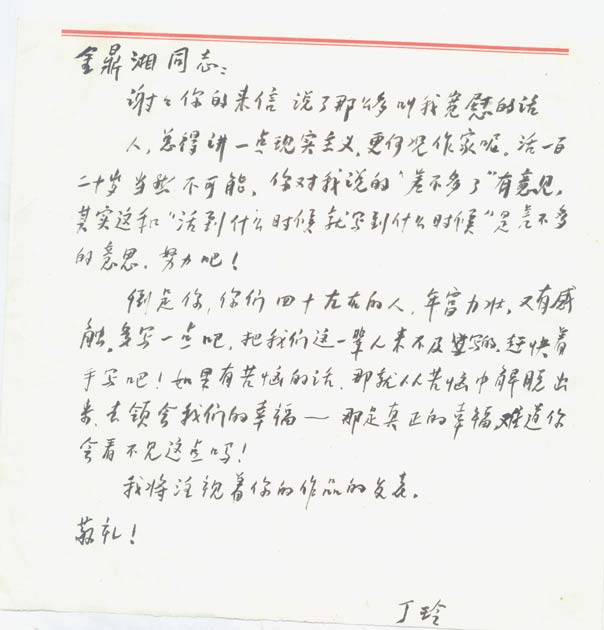 金鼎湘同志：
谢谢你的来信 说了那么多叫我宽慰的话
人，总得讲一点现实主义，更何况作家呢。活一百
二十岁当然不可能，你对我说的“差不多了”有意见，
其实这和“活到什么时候就写到什么时候”是差不多
的意思，努力吧！
倒是你，你们四十左右的人，年富力壮，又有感
触，多写一点吧，把我们这一辈人来不及写的，赶快着
手写吧！如果有苦恼的话，那就从苦恼中解脱出
来，去领会我们的幸福——那是真正的幸福，难道你
会看不见这点吗！
我将注视着你的作品的发表。
敬礼！
丁玲